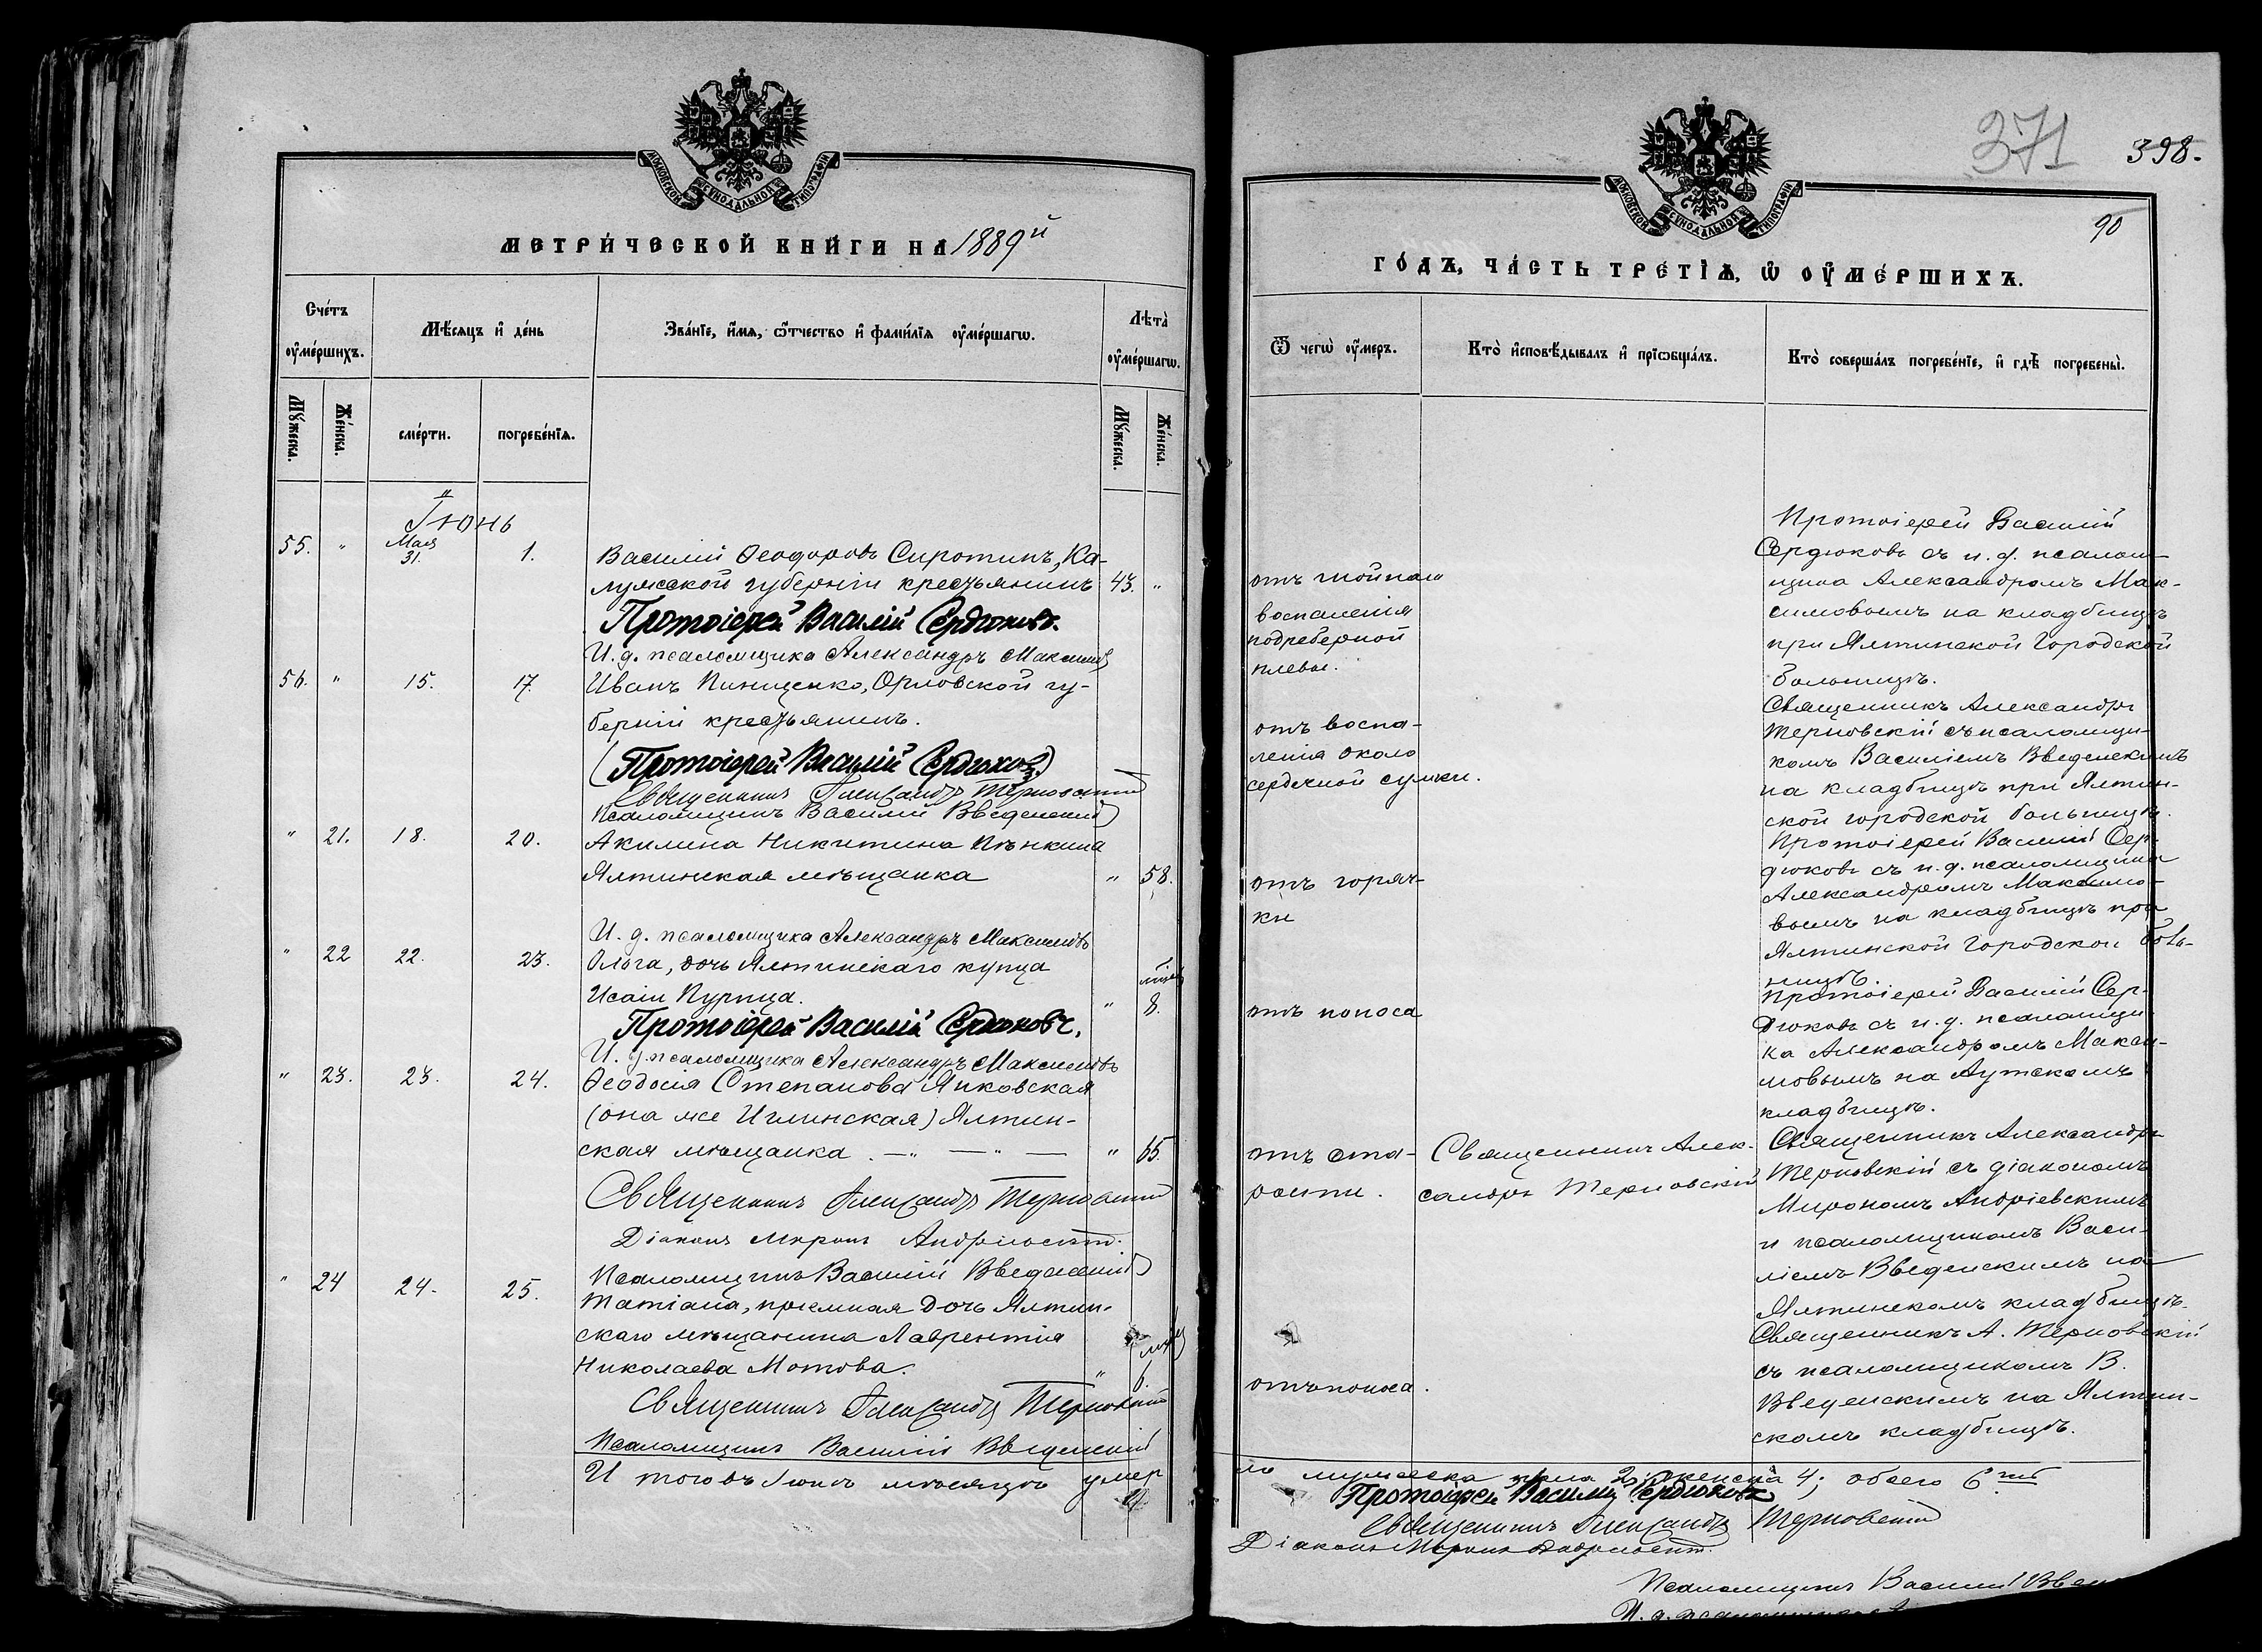 МОСКОВСКОЙ СѴНОДАЛЬНОЙ ТИПОГРАФІИ
МЕТРИ́ЧЕСКОЙ КНИ́ГИ НА 1889й
Сче́тъ ᲂу҆ме́ршихъ.
Мѣ́сяцъ и҆ де́нь
Зва́нїе, и҆́мѧ, ѻ҆́тчество и҆ фами́лїѧ ᲂу҆ме́ршагѡ.
Лѣта̀ ᲂу҆ме́ршагѡ.
Мꙋ́жеска.
Же́нска.
сме́рти.
погребе́нїѧ.
Мꙋ́жеска.
Же́нска.
Іюнь
55. " Мая 31. 1. Василій Ѳеодоровъ Сиротинъ, Ка-
лужской губерніи крестьянинъ 43. "
Протоіерей Василій Сердюковъ.
И. д. псаломщика Александръ Максимовъ
56. " 15. 17. Иванъ Пинищенко, Орловской гу-
берніи крестьянинъ.
(Протоіерей Василій Сердюковъ)
Священникъ Александръ Терновскій
Псаломщикъ Василій Введенскій
" 21. 18. 20. Акилина Никитина Пѣнкина
Ялтинская мѣщанка " 58.
И. д. псаломщика Александръ Максимовъ
" 22 22. 23. Ольга, дочь Ялтинскаго купца
Исаіи Пурица. " 8.
Протоіерей Василій Сердюковъ.
И. д. псаломщика Александръ Максимовъ
" 23. 23. 24. Ѳеодосія Степанова Янковская
(она же Иглинская) Ялтин-
ская мѣщанка. " 65.
Священникъ Александръ Терновскій
Діаконъ Миронъ Андріевскій.
Псаломщикъ Василій Введенскій
" 24 24. 25. Татіана, пріемная дочь Ялтин-
скаго мѣщанина Лаврентія
Николаева Мотова. " 6.
Священникъ Александръ Терновскій
Псаломщикъ Василій Введенскій
И того въ Іюнѣ мѣсяцѣ умер
371 398.
90
МОСКОВСКОЙ СѴНОДАЛЬНОЙ ТИПОГРАФІИ
ГО́ДЪ, ЧА́СТЬ ТРЕ́ТІѦ, Ѡ҆ ОУ҆МЕ́РШИХЪ.
Ѿ чегѡ̀ ᲂу҆́меръ.
Кто̀ и҆сповѣ́дывалъ и҆ прїѡбща́лъ.
Кто̀ соверша́лъ погребе́нїе, и҆ гдѣ̀ погребены̀.
отъ гнойнаго
воспаленія
подреберной
плевы.
Протоіерей Василій
Сердюковъ съ и. д. псалом-
щика Александромъ Мак-
симовымъ на кладбищѣ
при Ялтинской Городской
больницѣ.
отъ воспа-
ленія около
сердечной сумки.
Священникъ Александръ
Терновскій съ псаломщи-
комъ Василіемъ Введенскимъ
на кладбищѣ при Ялтин-
ской городской больницѣ.
отъ горяч-
ки
Протоіерей Василій Сер-
дюковъ съ и. д. псаломщика
Александромъ Максимо-
вымъ на кладбищѣ при
Ялтинской Городской боль-
ницѣ.
отъ поноса
Протоіерей Василій Сер-
дюковъ съ и. д. псаломщи-
ка Александромъ Макси-
мовымъ на Аутскомъ
кладбищѣ.
отъ ста-
рости.
Священникъ Алек-
сандръ Терновскій
Священникъ Александръ
Терновскій съ діакономъ
Мирономъ Андріевскимъ
и псаломщикомъ Васи-
ліемъ Введенскимъ на
Ялтинскомъ кладбищѣ.
отъ поноса.
Священникъ А. Терновскій
съ псаломщикомъ В.
Введенскимъ на Ялтин-
скомъ кладбищѣ.
ло мужеска пола 2, женска 4; обоего 6
Протоіерей Василій Сердюковъ
Священникъ Александръ Терновскій
Діаконъ Миронъ Андріевскій.
Псаломщикъ Василій Введ
И. д. псаломщика